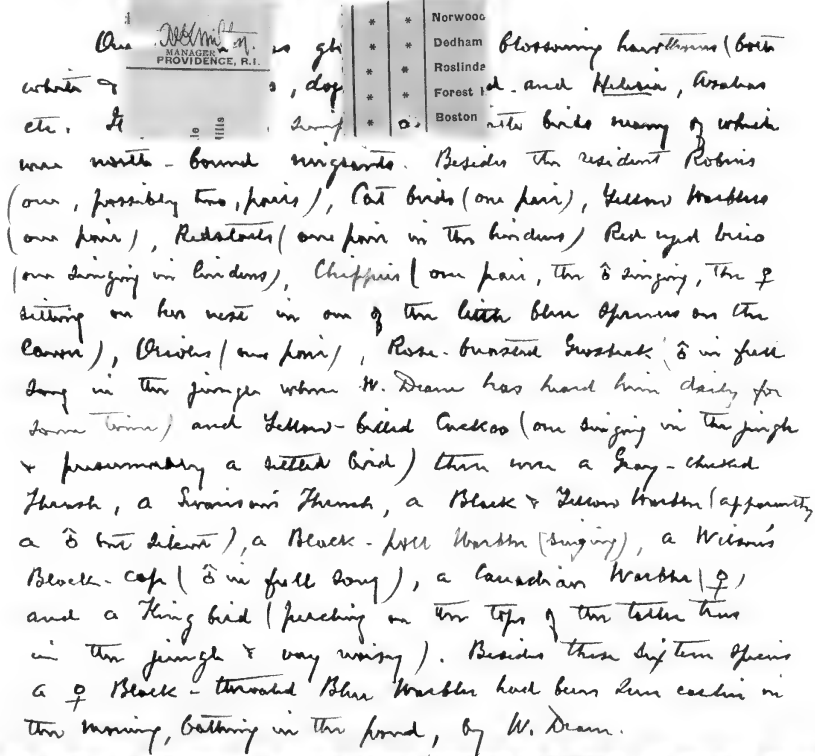 Our gl blossoming hawthorns (both
white & s, dog d. and Halesia, Azaleas
etc. It birds many of which
were north-bound migrants. Besides the resident Robins
(one, possibly two, pairs), Cat birds (one pair), Yellow Warblers
(one pair), Redstarts (one pair in the lindens) Red eyed Vireo
(one singing in lindens), Chippies (one pair, the ♂ singing, the ♀
sitting on her nest in one of the little blue spruces on the
lawn), Orioles (one pair), Rose-breasted Grosbeak (♂ in full
song in the jungle where W. Deane has heard him daily for
some time) and Yellow-billed Cuckoo (one singing in the jungle
& presumably a settled bird) there were a Gray-cheeked
Thrush, a Swainson's Thrush, a Black & Yellow Warbler (apparently
a ♂ but silent), a Black-poll Warbler (singing), a Wilson's
Black-cap (♂ in full song), a Canadian Warbler (♀)
and a King bird (perching on the tops of the taller trees
in the jungle & very noisy). Besides these sixteen species
a ♀ Black-throated Blue Warbler had been seen earlier in
the morning, bathing in the pond, by W. Deane.
MANAGER
PROVIDENCE, R.I.
* * Norwood
* * Dedham
* * Roslinda
* * Forest
* Boston